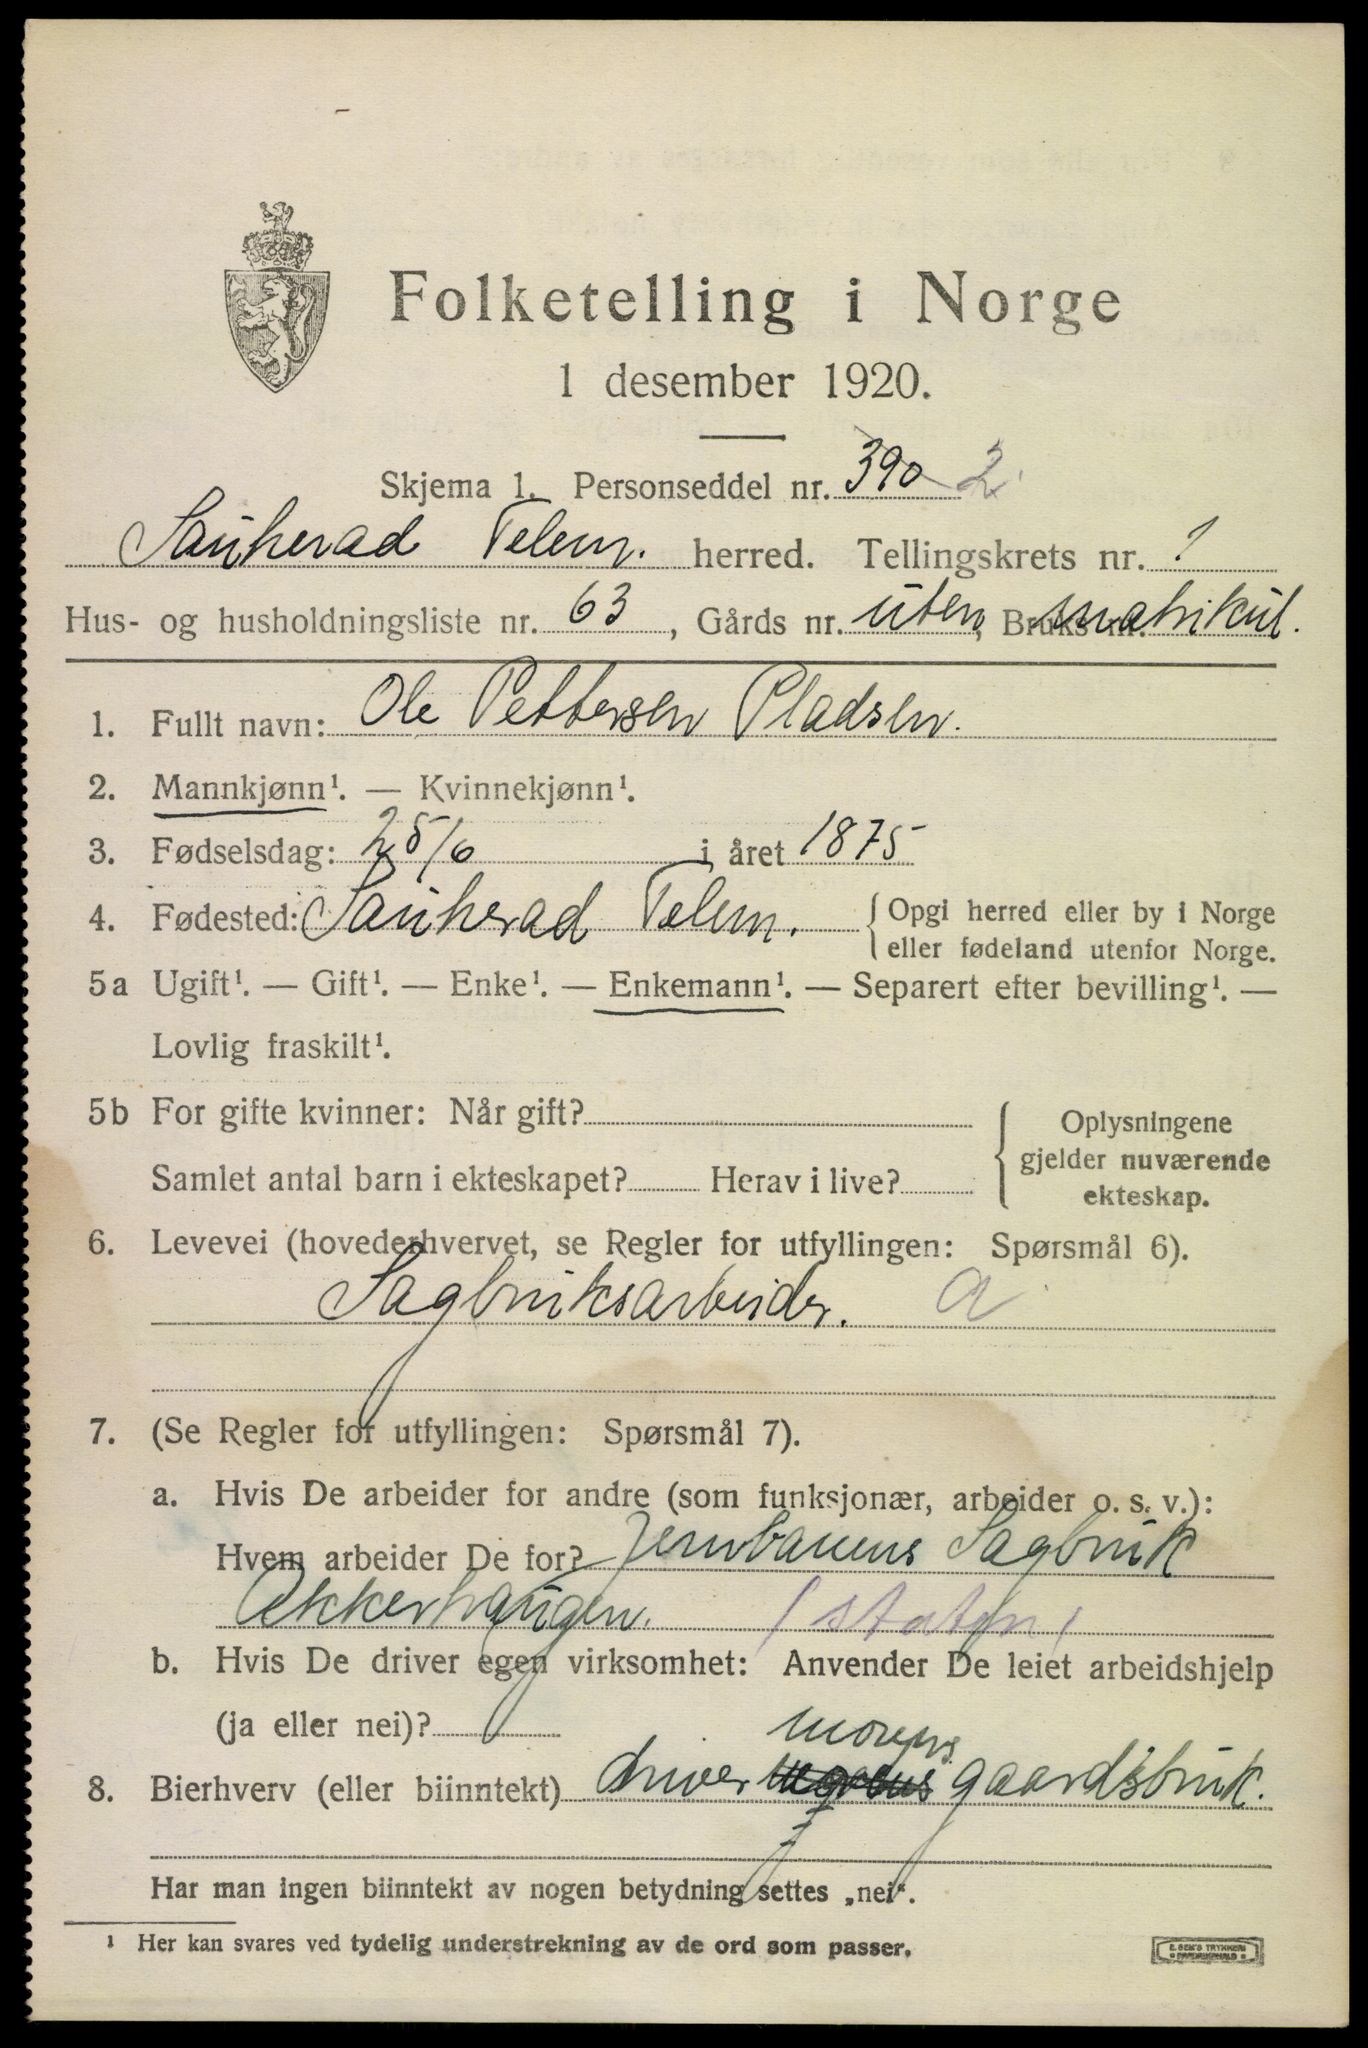 Folketelling i Norge
1 desember 1920.
Skjema 1. Personseddel nr. 390 2
Sauherad Telem. herred. Tellingskrets nr. 1
Hus- og husholdningsliste nr. 63, Gårds nr. uten, Bruks nr. matrikul.
1. Fullt navn: Ole Pettersen Pladsen.
2. Mannkjønn¹. — Kvinnekjønn¹.
3. Fødselsdag: 25/6 i året 1875
4. Fødested: Sauherad Telem. { Opgi herred eller by i Norge
eller fødeland utenfor Norge.
5a Ugift¹. — Gift¹. — Enke¹. — Enkemann¹. — Separert efter bevilling¹. —
Lovlig fraskilt¹.
5b For gifte kvinner: Når gift?
Samlet antal barn i ekteskapet? Herav i live?
{ Oplysningene
gjelder nuværende
ekteskap.
6. Levevei (hovederhvervet, se Regler for utfyllingen: Spørsmål 6).
Sagbruksarbeider. a
7. (Se Regler for utfyllingen: Spørsmål 7).
a. Hvis De arbeider for andre (som funksjonær, arbeider o. s. v.):
Hvem arbeider De for? Jernbanens Sagbruk
Akkerhaugen. (staten)
b. Hvis De driver egen virksomhet: Anvender De leiet arbeidshjelp
(ja eller nei)?
morens
8. Bierhverv (eller biinntekt) driver gaardsbruk.
Har man ingen biinntekt av nogen betydning settes „nei“.
¹ Her kan svares ved tydelig understrekning av de ord som passer.